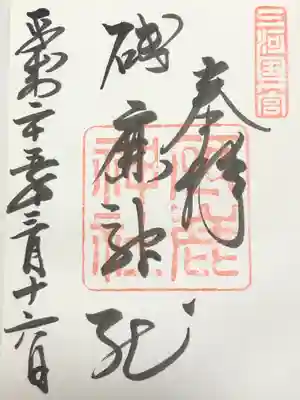 三河里宮
奉拝
砥鹿神社
砥鹿神社
平成二十五年三月十六日